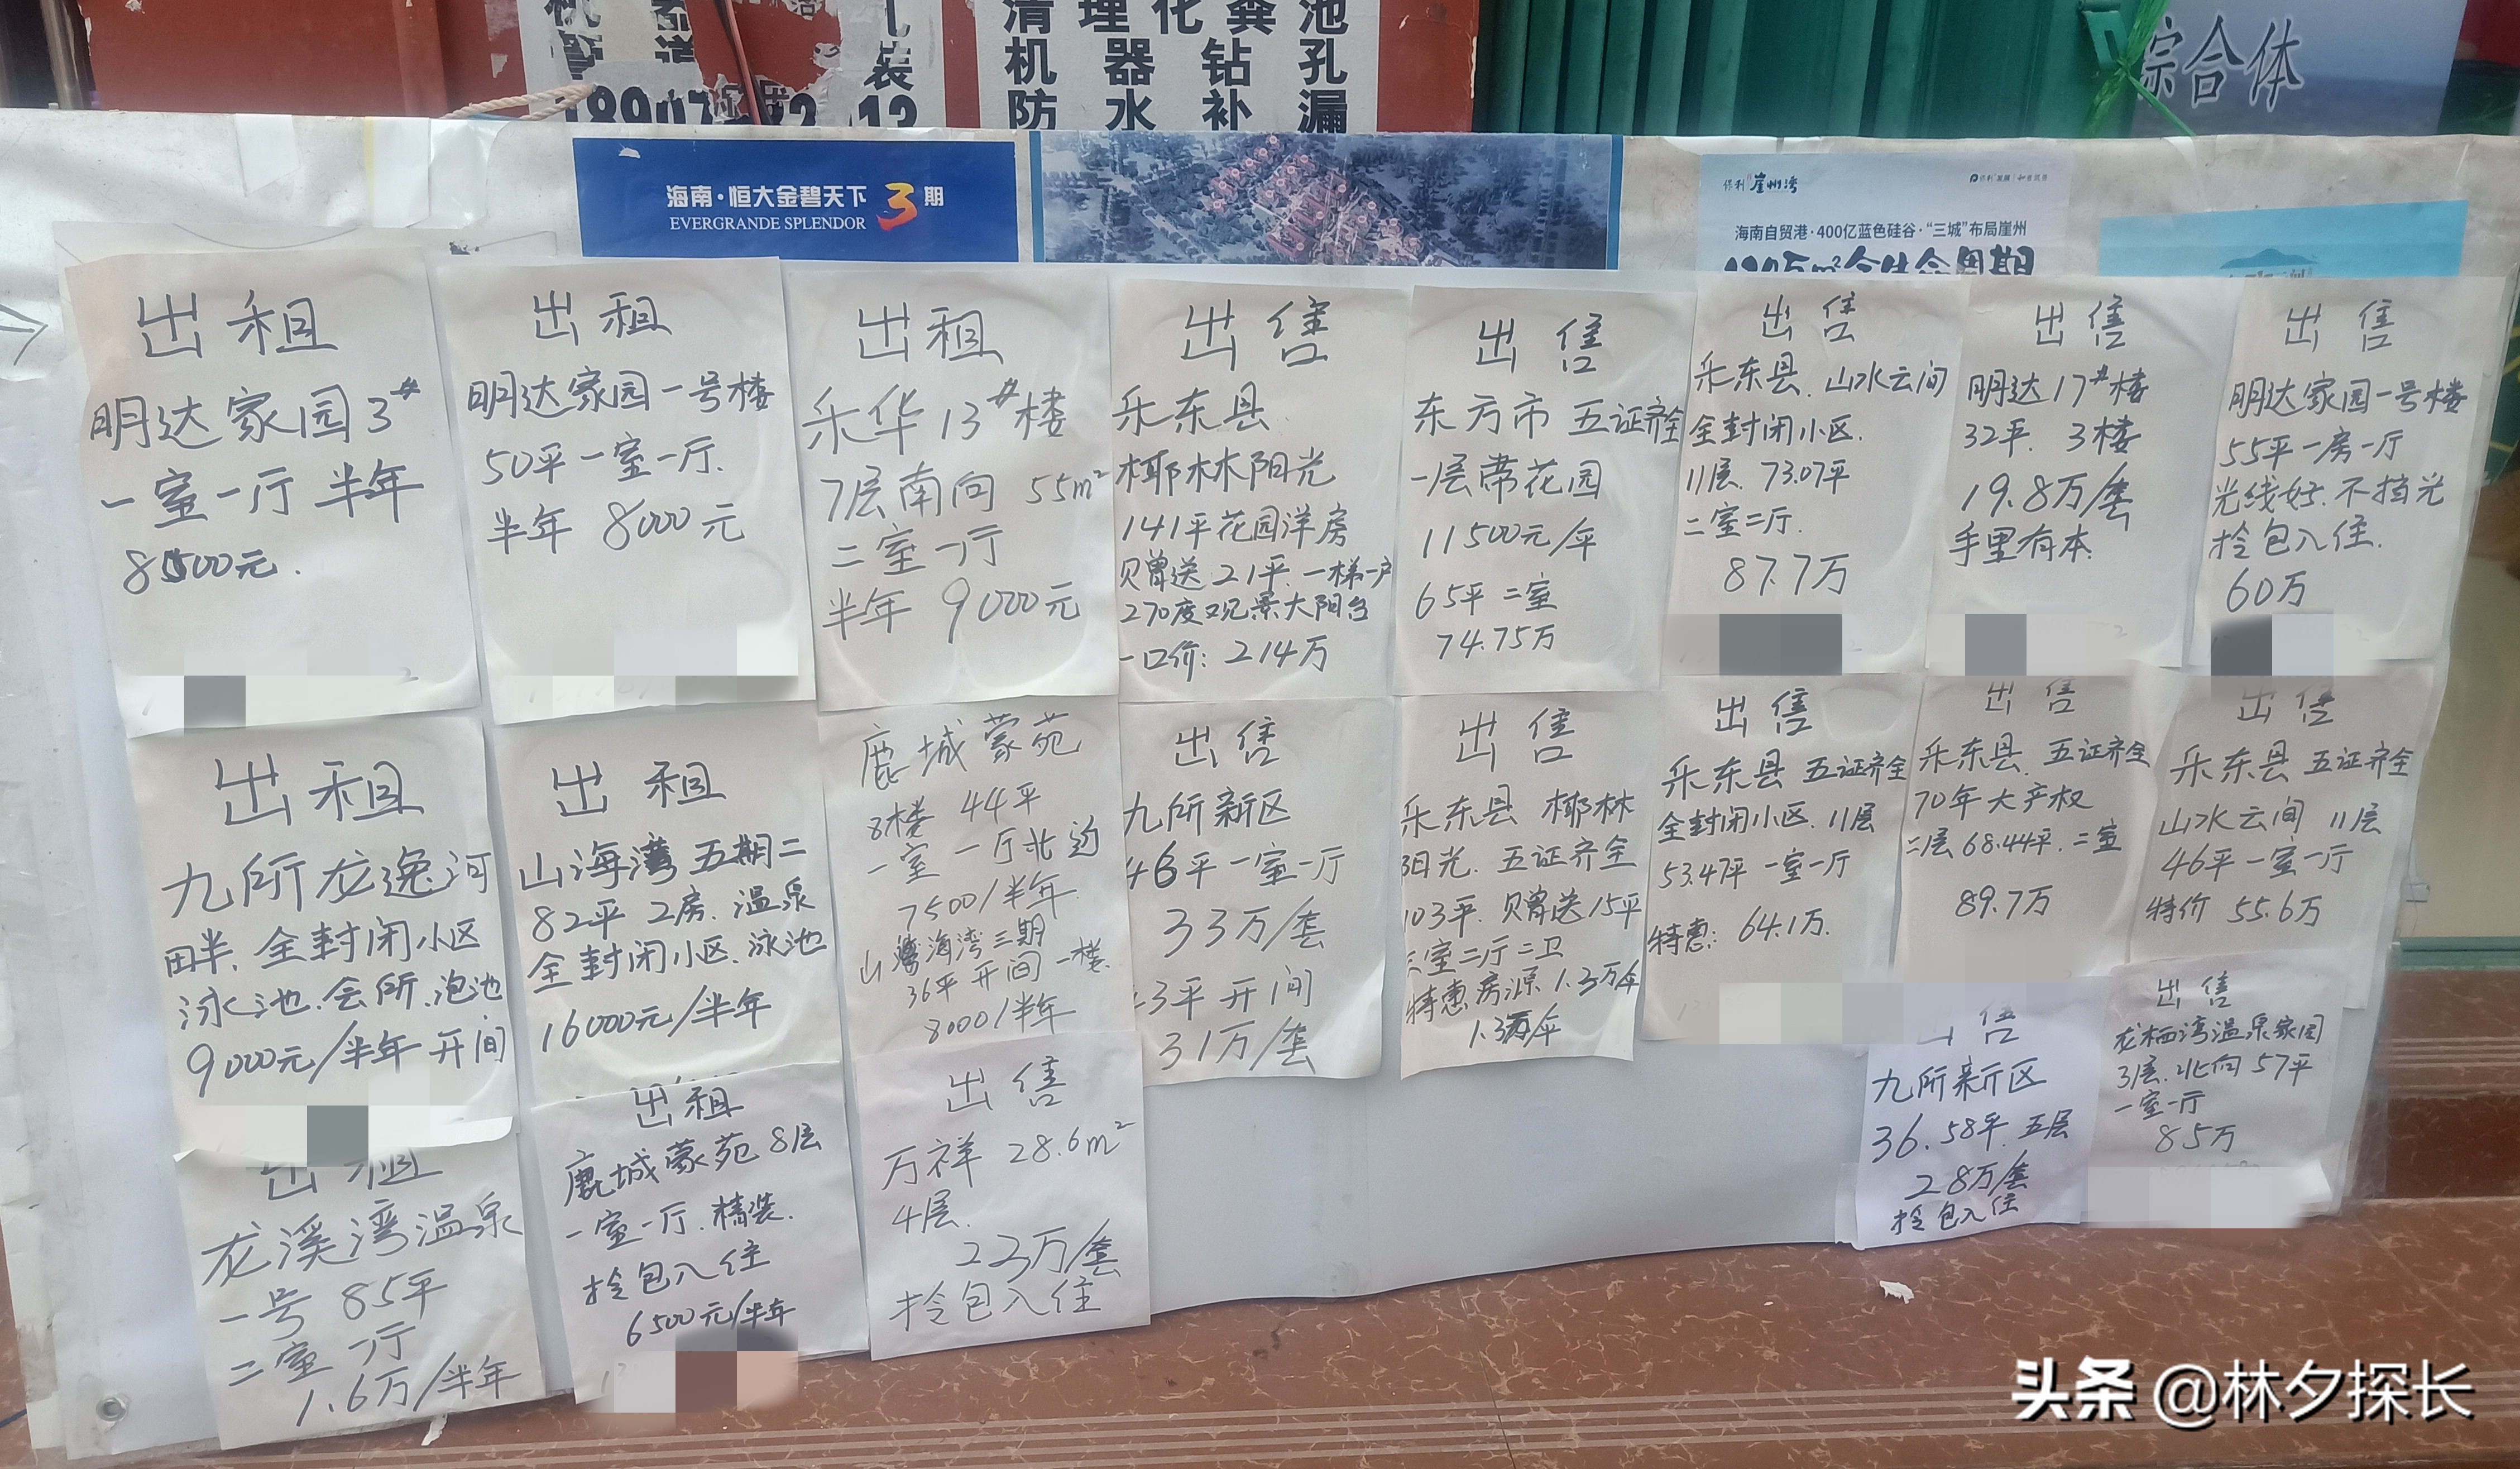 清理化粪池
机器钻孔
防水补漏
装
综合体
海南·恒大金碧天下3期
EVERGRANDE SPLENDOR
保利 崖州湾
海南自贸港·400亿蓝色硅谷·“三城”布局崖州
出租
明达家园3#
一室一厅 半年
8500元.
出租
明达家园一号楼
50平一室一厅.
半年 8000元
出租
乐华13#楼
7层南向 55m²
二室一厅
半年 9000元
出售
乐东县
椰林阳光
141平花园洋房
赠送21平.一梯一户
270度观景大阳台
一口价:214万
出售
东方市 五证齐全
一层带花园
11500元/平
65平二室
74.75万
出售
乐东县.山水云间
全封闭小区.
11层.73.07平
二室二厅.
87.7万
出售
明达17#楼
32平.3楼
19.8万/套
手里有本.
出售
明达家园一号楼
55平一房一厅
光线好.不挡光
拎包入住.
60万
出租
九所龙逸河
畔.全封闭小区
泳池.会所.泡池
9000元/半年开间
出租
山海湾五期二
82平 2房.温泉
全封闭小区.泳池
16000元/半年
鹿城蒙苑
8楼 44平
一室一厅北边
7500/半年
山海湾三期
36平开间一楼.
8000/半年
出售
九所新区
46平一室一厅
33万/套
43平开间
31万/套
出售
乐东县 椰林
阳光.五证齐全
103平.赠送15平
三室二厅二卫
特惠房源1.3万/平
1.3万/平
出售
乐东县 五证齐全
全封闭小区.11层
53.47平一室一厅
特惠:64.1万.
出售
乐东县.五证齐全
70年大产权
二层68.44平.二室
89.7万
出售
乐东县 五证齐全
山水云间 11层
46平一室一厅
特价 55.6万
出租
龙溪湾温泉
一号 85平
二室一厅
1.6万/半年
出租
鹿城蒙苑8层
一室一厅.精装.
拎包入住
6500元/半年
出售
万祥 28.6m²
4层.
23万/套
拎包入住
出售
九所新区
36.58平.五层
28万/套
拎包入住
出售
龙栖湾温泉家园
3层.北向57平
一室一厅
85万
头条 @林夕探长